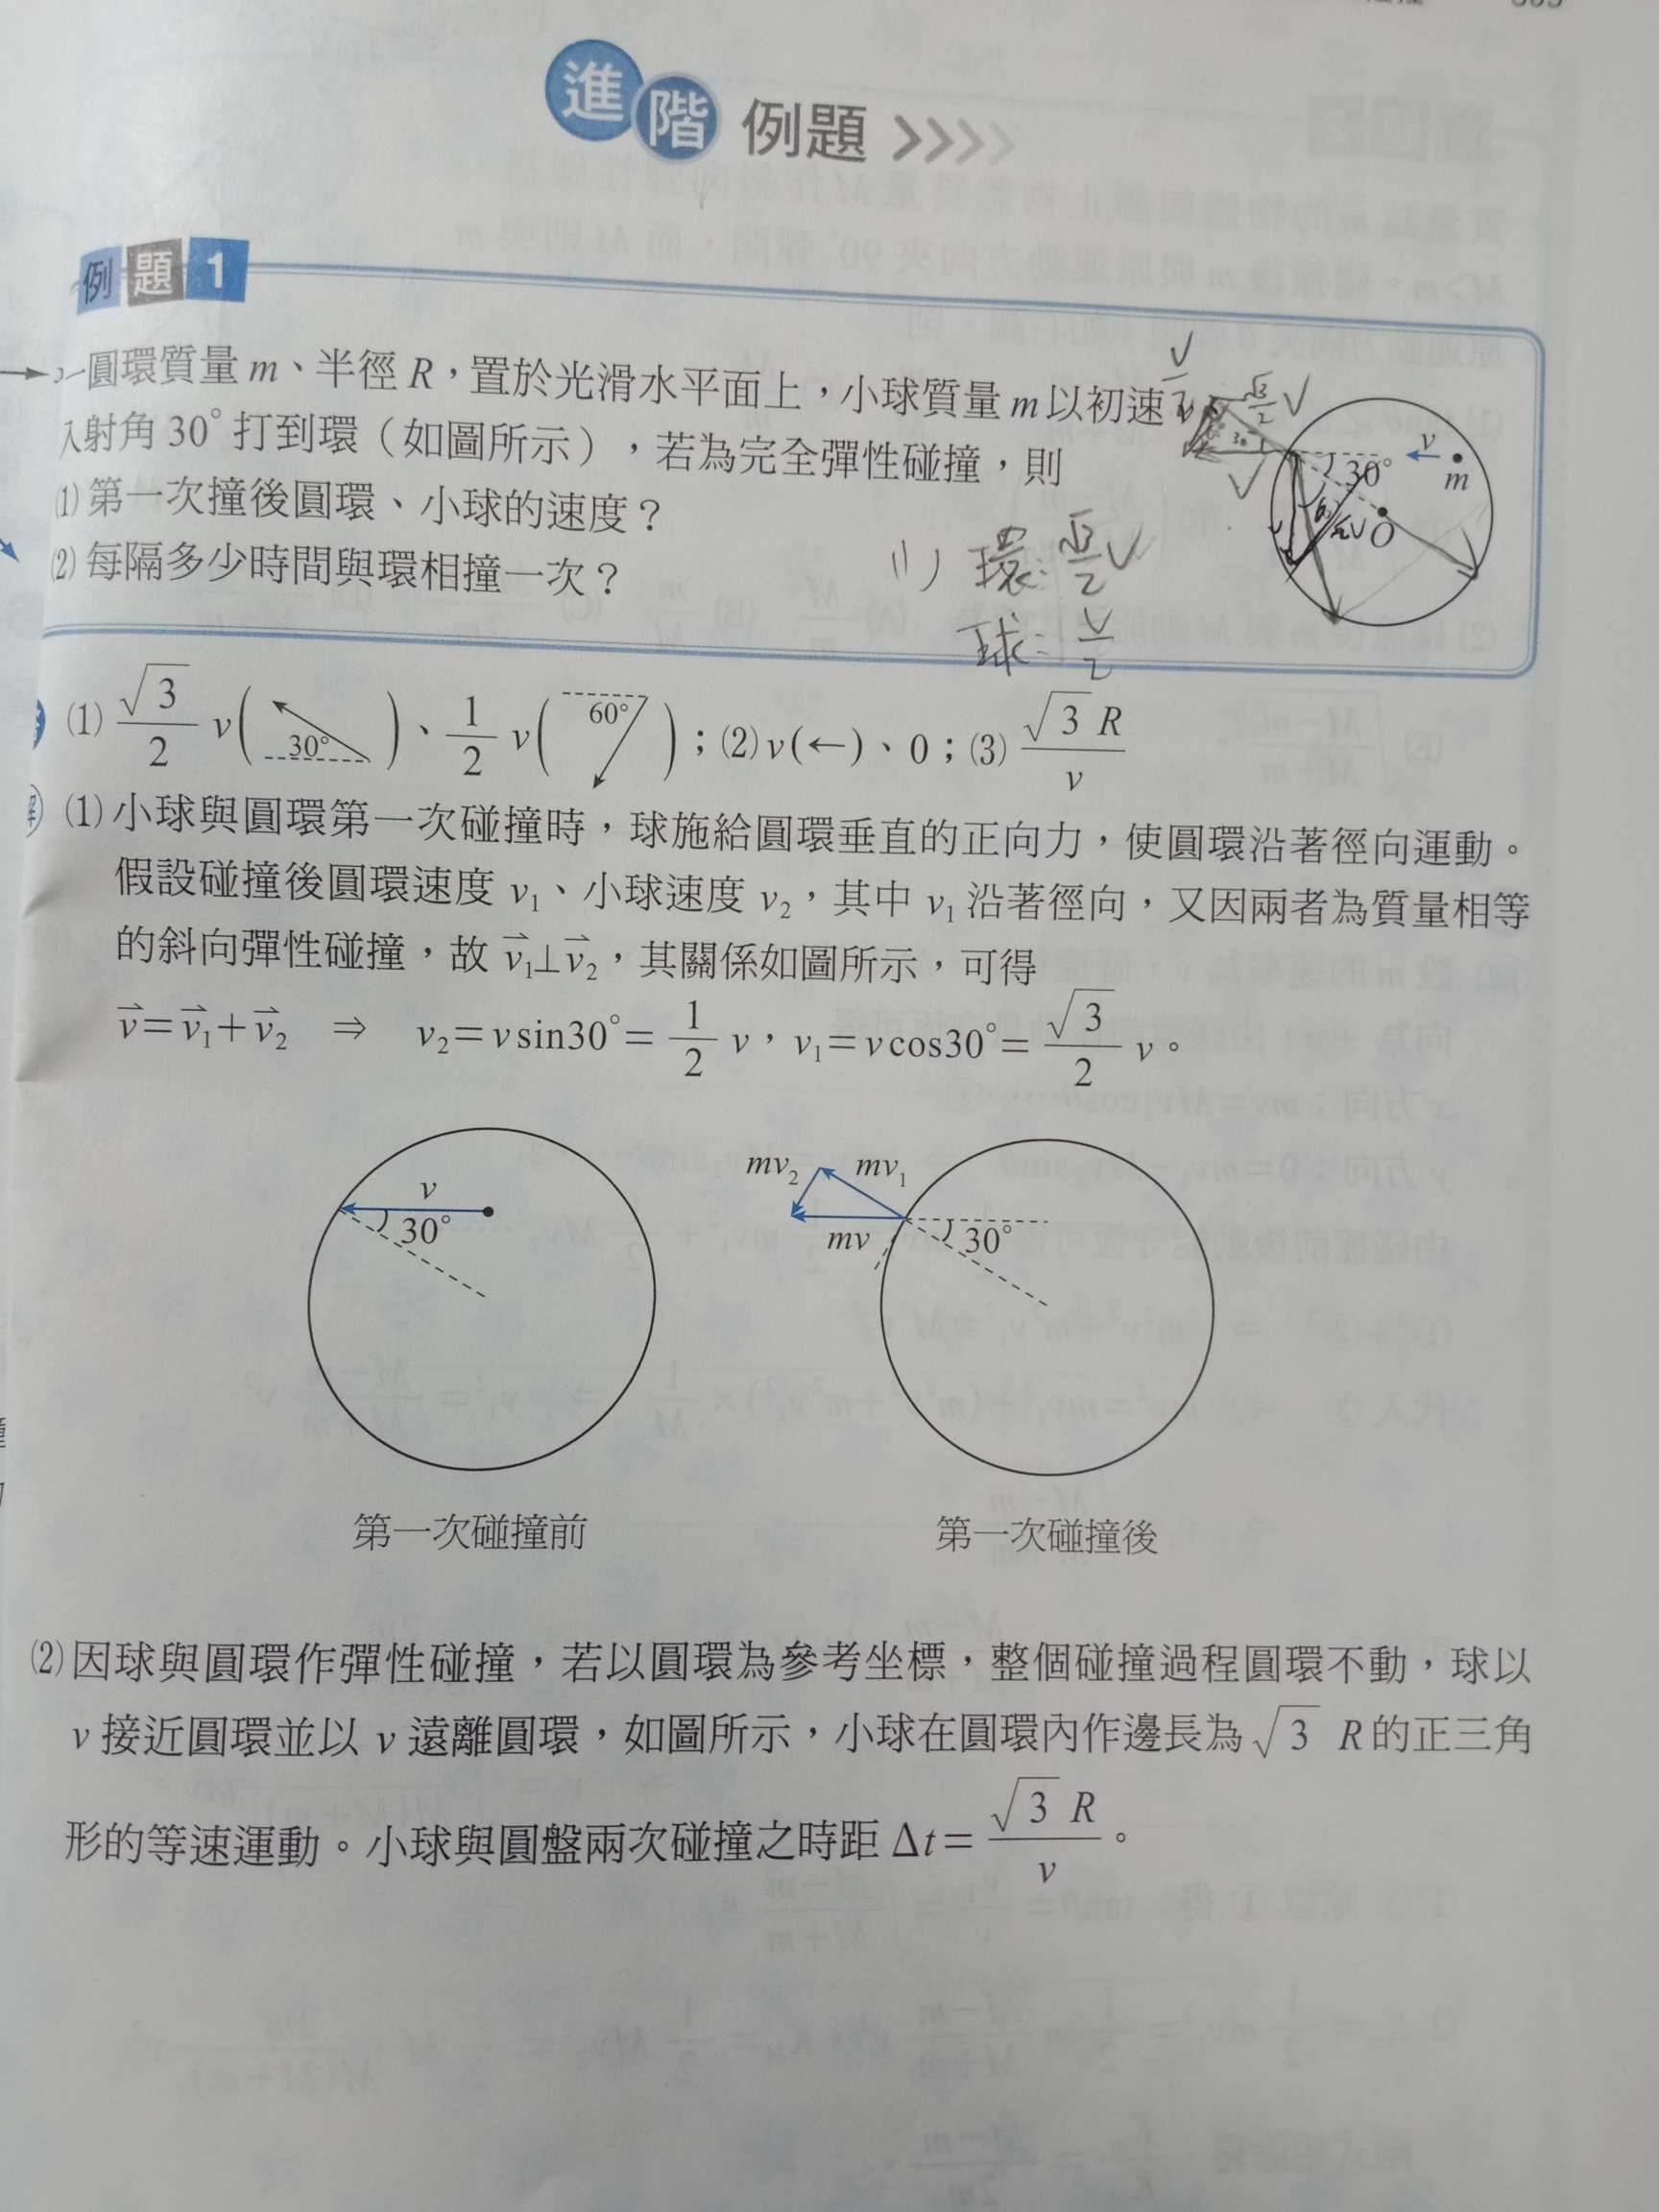 進階 例題
例題1
一圓環質量 m、半徑 R，置於光滑水平面上，小球質量 m 以初速
入射角 30° 打到環（如圖所示），若為完全彈性碰撞，則
(1) 第一次撞後圓環、小球的速度？
(2) 每隔多少時間與環相撞一次？
v
30°
m
O
(1) 環: √3/2 V
球: V/2
(1) √3/2 v( 30° )、1/2 v( 60° )；(2) v(←)、0；(3) √3 R/v
解 (1) 小球與圓環第一次碰撞時，球施給圓環垂直的正向力，使圓環沿著徑向運動。
假設碰撞後圓環速度 v₁、小球速度 v₂，其中 v₁ 沿著徑向，又因兩者為質量相等
的斜向彈性碰撞，故 v⃗₁⊥v⃗₂，其關係如圖所示，可得
v⃗=v⃗₁+v⃗₂ ⇒ v₂=v sin30°=1/2 v，v₁=v cos30°=√3/2 v。
v
30°
mv₂ mv₁
mv 30°
第一次碰撞前 第一次碰撞後
(2) 因球與圓環作彈性碰撞，若以圓環為參考坐標，整個碰撞過程圓環不動，球以
v 接近圓環並以 v 遠離圓環，如圖所示，小球在圓環內作邊長為 √3 R 的正三角
形的等速運動。小球與圓盤兩次碰撞之時距 Δt=√3 R/v。